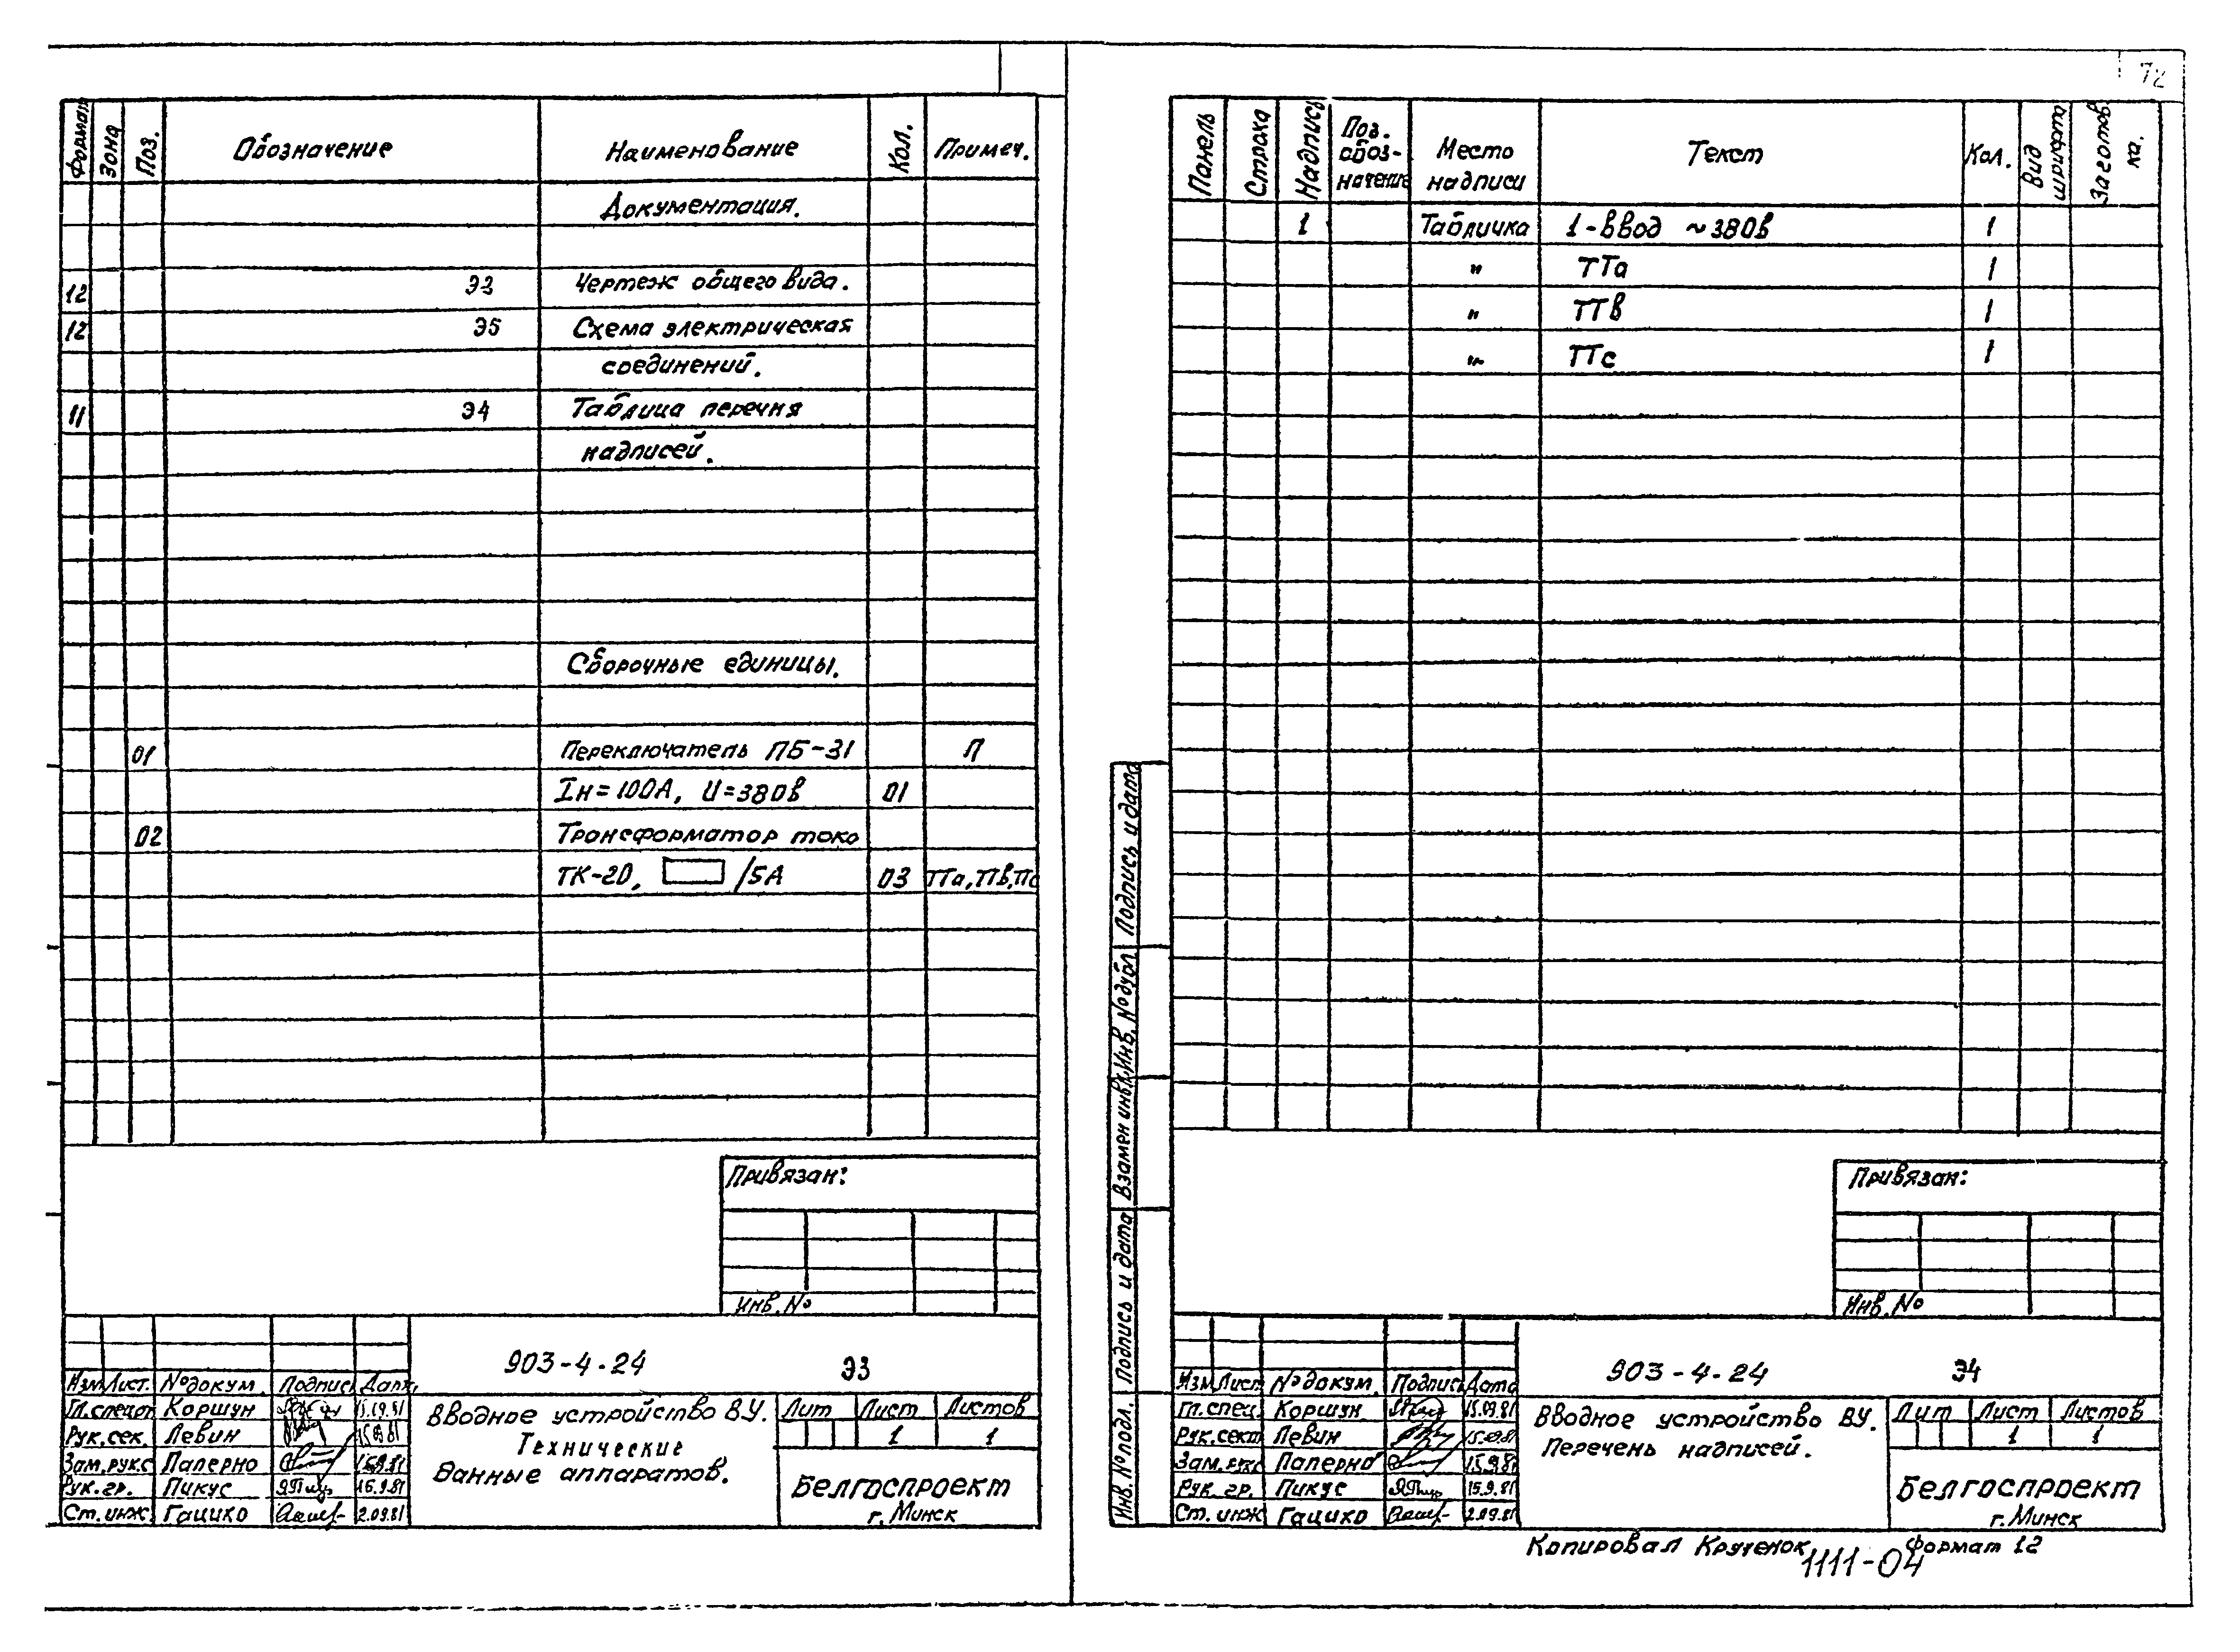 72
Формат Зона Поз. Обозначение Наименование Кол. Примеч.
Документация.
12 Э3 Чертеж общего вида.
12 Э5 Схема электрическая
соединений.
11 Э4 Таблица перечня
надписей.
Сборочные единицы.
01 Переключатель ПБ-31 П
Iн=100А, U=380в 01
02 Трансформатор тока
ТК-20, /5А 03 ТТа, ТТв, ТТс
Привязан:
Инв. №
903-4-24 Э3
Изм. Лист. № докум. Подпись Дата
Гл.спец. Коршун 15.09.81
Рук.сек. Левин 15.09.81
Зам.рук.с Паперно 15.9.81
Рук.гр. Пикус 15.9.81
Ст.инж. Гацико 2.09.81
Вводное устройство ВУ.
Технические
данные аппаратов.
Лит Лист Листов
1 1
Белгоспроект
г. Минск
Панель Строка Надпись Поз. обоз-начение Место надписи Текст Кол. Вид шрифта Заготов ка.
1 Табличка 1-Ввод ~380в 1
" ТТа 1
" ТТв 1
" ТТс 1
Подпись и дата
Инв. № дубл.
Взамен инв. №
Подпись и дата
Инв. № подл.
Привязан:
Инв. №
903-4-24 Э4
Изм. Лист № докум. Подпись Дата
Гл.спец. Коршун 15.09.81
Рук.сект Левин 15.09.81
Зам.рук.с Паперно 15.9.81
Рук.гр. Пикус 15.9.81
Ст.инж Гацико 2.09.81
Вводное устройство ВУ.
Перечень надписей.
Лит Лист Листов
1 1
Белгоспроект
г. Минск
Копировал Крученок Формат 12
1111-04